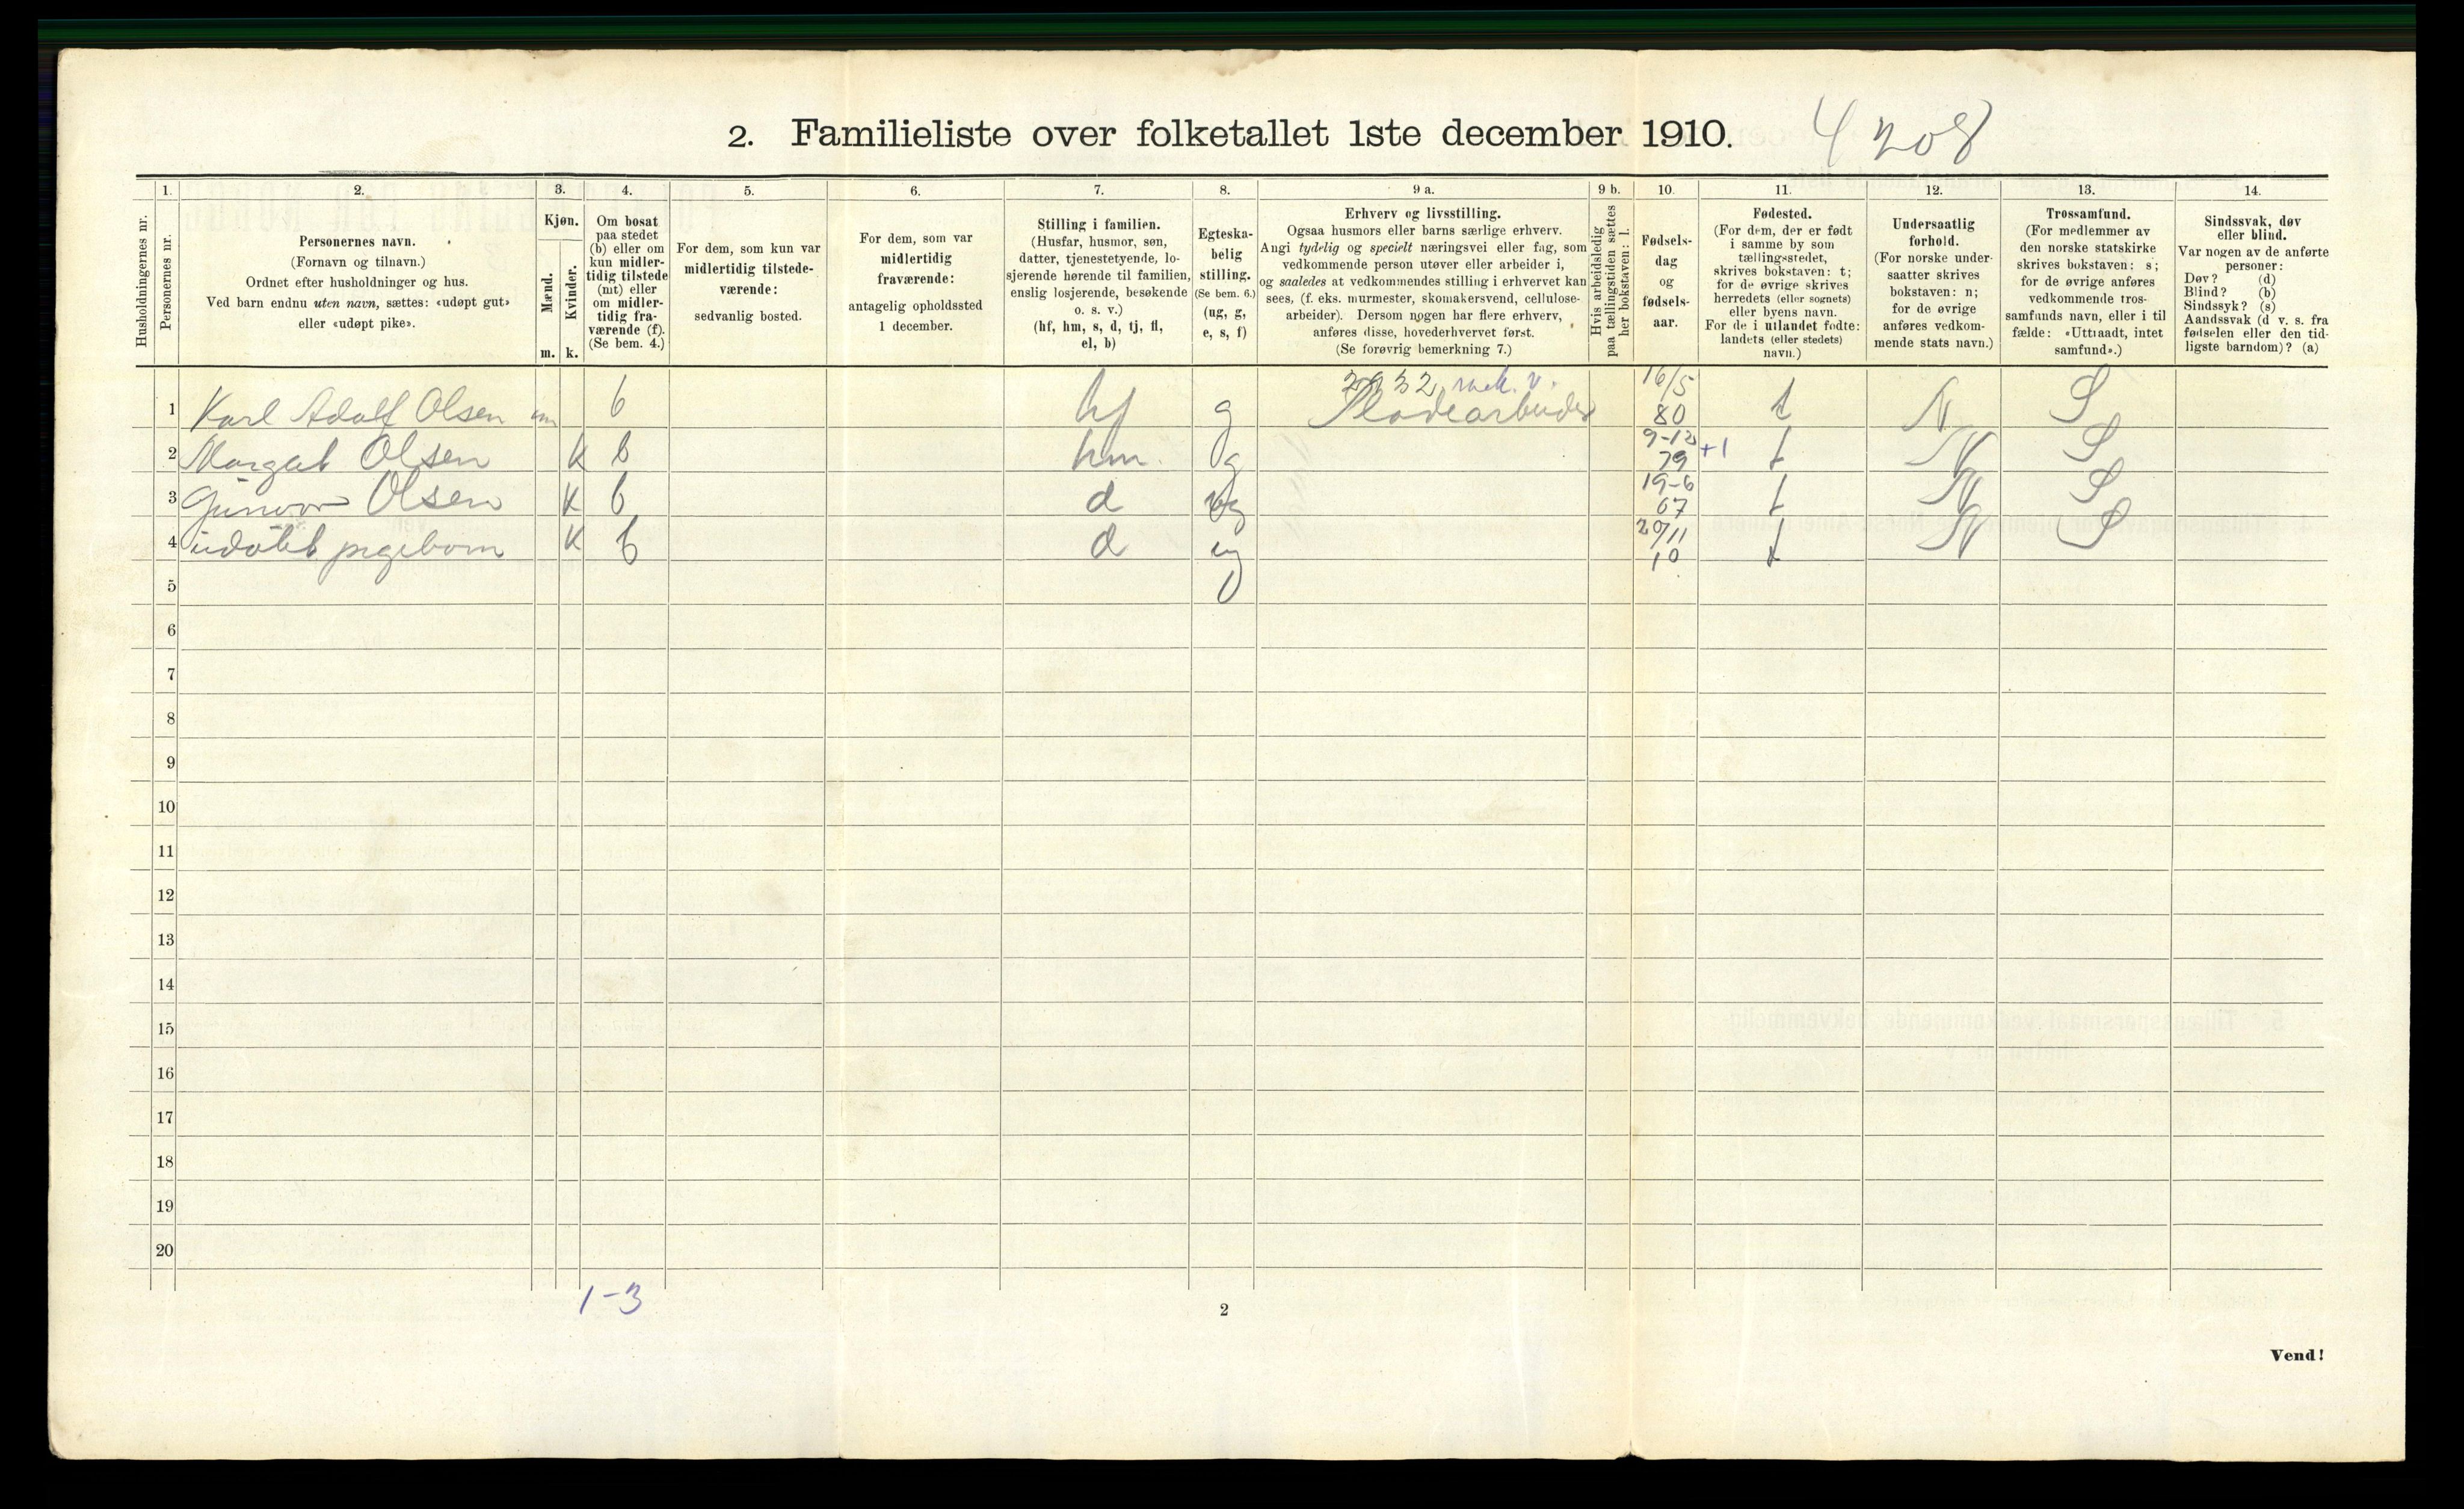 2. Familieliste over folketallet 1ste december 1910. 4208
Husholdningernes nr.
1. Personernes nr.
2. Personernes navn. (Fornavn og tilnavn.) Ordnet efter husholdninger og hus. Ved barn endnu uten navn, sættes: «udøpt gut» eller «udøpt pike».
3. Kjøn. Mænd. m. Kvinder. k.
4. Om bosat paa stedet (b) eller om kun midlertidig tilstede (mt) eller om midlertidig fraværende (f). (Se bem. 4.)
5. For dem, som kun var midlertidig tilstedeværende: sedvanlig bosted.
6. For dem, som var midlertidig fraværende: antagelig opholdssted 1 december.
7. Stilling i familien. (Husfar, husmor, søn, datter, tjenestetyende, losjerende hørende til familien, enslig losjerende, besøkende o. s. v.) (hf, hm, s, d, tj, fl, el, b)
8. Egteskabelig stilling. (Se bem. 6.) (ug, g, e, s, f)
9 a. Erhverv og livsstilling. Ogsaa husmors eller barns særlige erhverv. Angi tydelig og specielt næringsvei eller fag, som vedkommende person utøver eller arbeider i, og saaledes at vedkommendes stilling i erhvervet kan sees, (f. eks. murmester, skomakersvend, cellulosearbeider). Dersom nogen har flere erhverv, anføres disse, hovederhvervet først. (Se forøvrig bemerkning 7.)
9 b. Hvis arbeidsledig paa tællingstiden sættes her bokstaven: l.
10. Fødselsdag og fødselsaar.
11. Fødested. (For dem, der er født i samme by som tællingsstedet, skrives bokstaven: t; for de øvrige skrives herredets (eller sognets) eller byens navn. For de i utlandet fødte: landets (eller stedets) navn.)
12. Undersaatlig forhold. (For norske undersaatter skrives bokstaven: n; for de øvrige anføres vedkommende stats navn.)
13. Trossamfund. (For medlemmer av den norske statskirke skrives bokstaven: s; for de øvrige anføres vedkommende trossamfunds navn, eller i tilfælde: «Uttraadt, intet samfund».)
14. Sindssvak, døv eller blind. Var nogen av de anførte personer: Døv? (d) Blind? (b) Sindssyk? (s) Aandssvak (d v. s. fra fødselen eller den tidligste barndom)? (a)
1 Karl Adolf Olsen m b hf g mek. v. 16/5 80 t N S
2 Margat Olsen K b hm. g 9-12 79 +1 t N S
3 Gunvor Olsen K b d ug 19-6 07 t N S
4 udøbt pigebarn K b d ug 20/11 10 t N S
5
6
7
8
9
10
11
12
13
14
15
16
17
18
19
20
1-3
2
Vend!